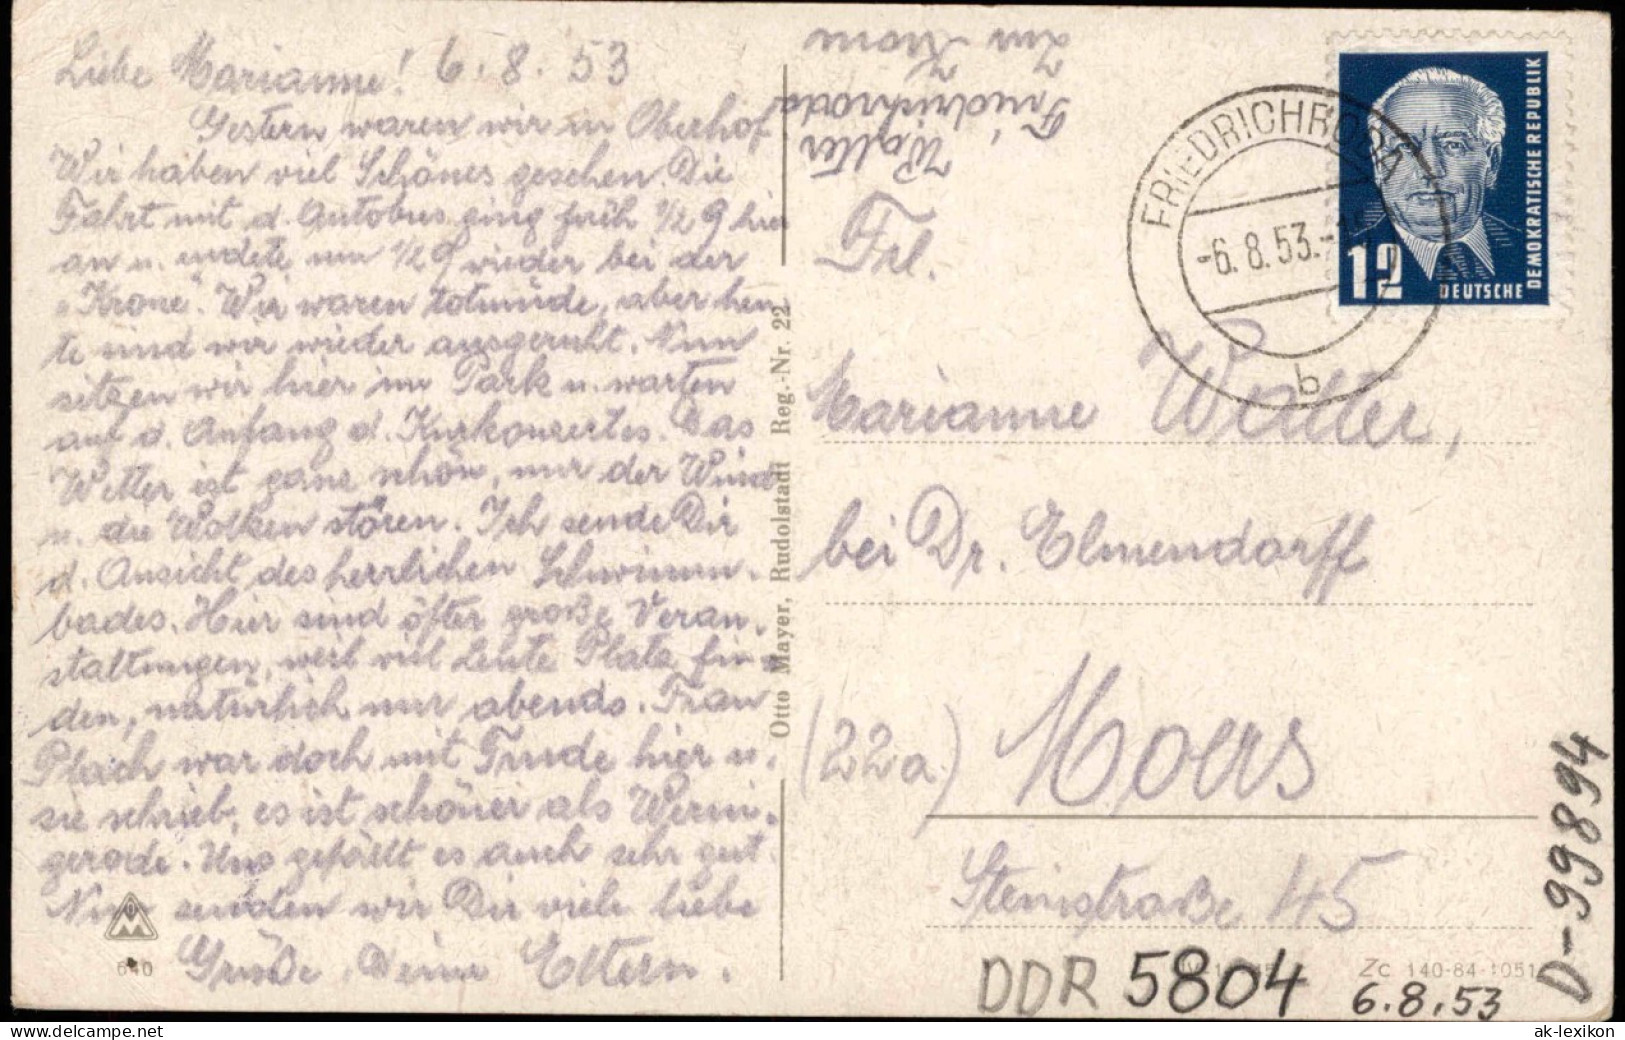 Liebe Marianne! 6.8.53
Gestern waren wir in Oberhof
Wir haben viel Schönes gesehen. Die
Fahrt mit d. Autobus ging früh ½ 9 hier
an u. endete um ½ 9 wieder bei der
"Krone". Wir waren totmüde, aber heu
te sind wir wieder ausgeruht. Nun
sitzen wir hier im Park u. warten
auf d. Anfang d. Kurkonzertes. Das
Wetter ist ganz schön, nur der Wind
u. die Wolken stören. Ich sende Dir
d. Ansicht des herrlichen Schwimm-
bades. Hier sind öfter große Veran-
staltungen, weil viel Leute Platz fin-
den, natürlich nur abends. Frau
Plaich war doch mit Trude hier u.
sie schrieb, es ist schöner als Werni-
gerode. Uns gefällt es auch sehr gut.
Nun senden wir Dir viele liebe
Grüße, Deine Eltern.
640
Otto Mayer, Rudolstadt Reg.-Nr. 22
Walter
Friedrichroda
Zur Krone
FRIEDRICHRODA
-6.8.53.-
b
12
DEUTSCHE
DEMOKRATISCHE REPUBLIK
Frl.
Marianne Walter,
bei Dr. Elmendorff
(22a) Moers
Steinstraße 45
DDR 5804
Zc 140-84-1051
6.8.53
D-99894
ak-lexikon.de/AK_04044
ak-lexikon